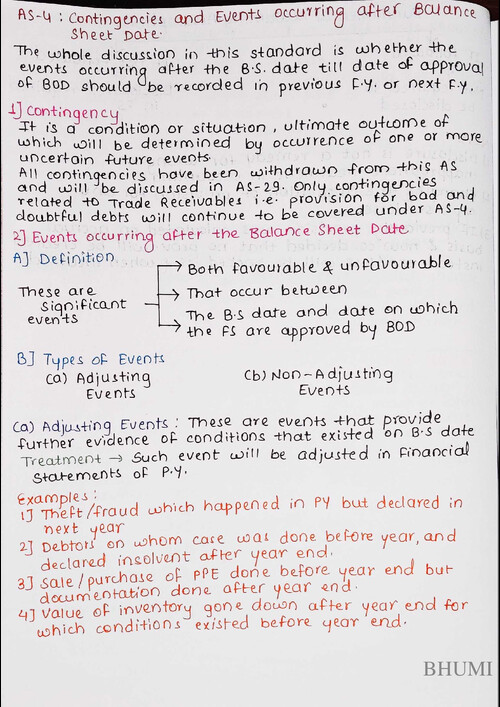 AS-4 : Contingencies and Events occurring after Balance
Sheet Date.
The whole discussion in this standard is whether the
events occurring after the B.S. date till date of approval
of BOD should be recorded in previous F.Y. or next F.Y.
1] Contingency
It is a condition or situation, ultimate outcome of
which will be determined by occurrence of one or more
uncertain future events.
All contingencies have been withdrawn from this AS
and will be discussed in AS-29. Only contingencies
related to Trade Receivables i.e. provision for bad and
doubtful debts will continue to be covered under AS-4.
2] Events occurring after the Balance Sheet Date
A] Definition
These are
significant
events
Both favourable & unfavourable
That occur between
The B.S date and date on which
the FS are approved by BOD
B] Types of Events
(a) Adjusting
Events
(b) Non-Adjusting
Events
(a) Adjusting Events : These are events that provide
further evidence of conditions that existed on B.S date
Treatment → Such event will be adjusted in Financial
Statements of P.Y.
Examples :
1] Theft/fraud which happened in PY but declared in
next year
2] Debtors on whom case was done before year, and
declared insolvent after year end.
3] Sale/purchase of PPE done before year end but
documentation done after year end.
4] Value of inventory gone down after year end for
which conditions existed before year end.
BHUMI